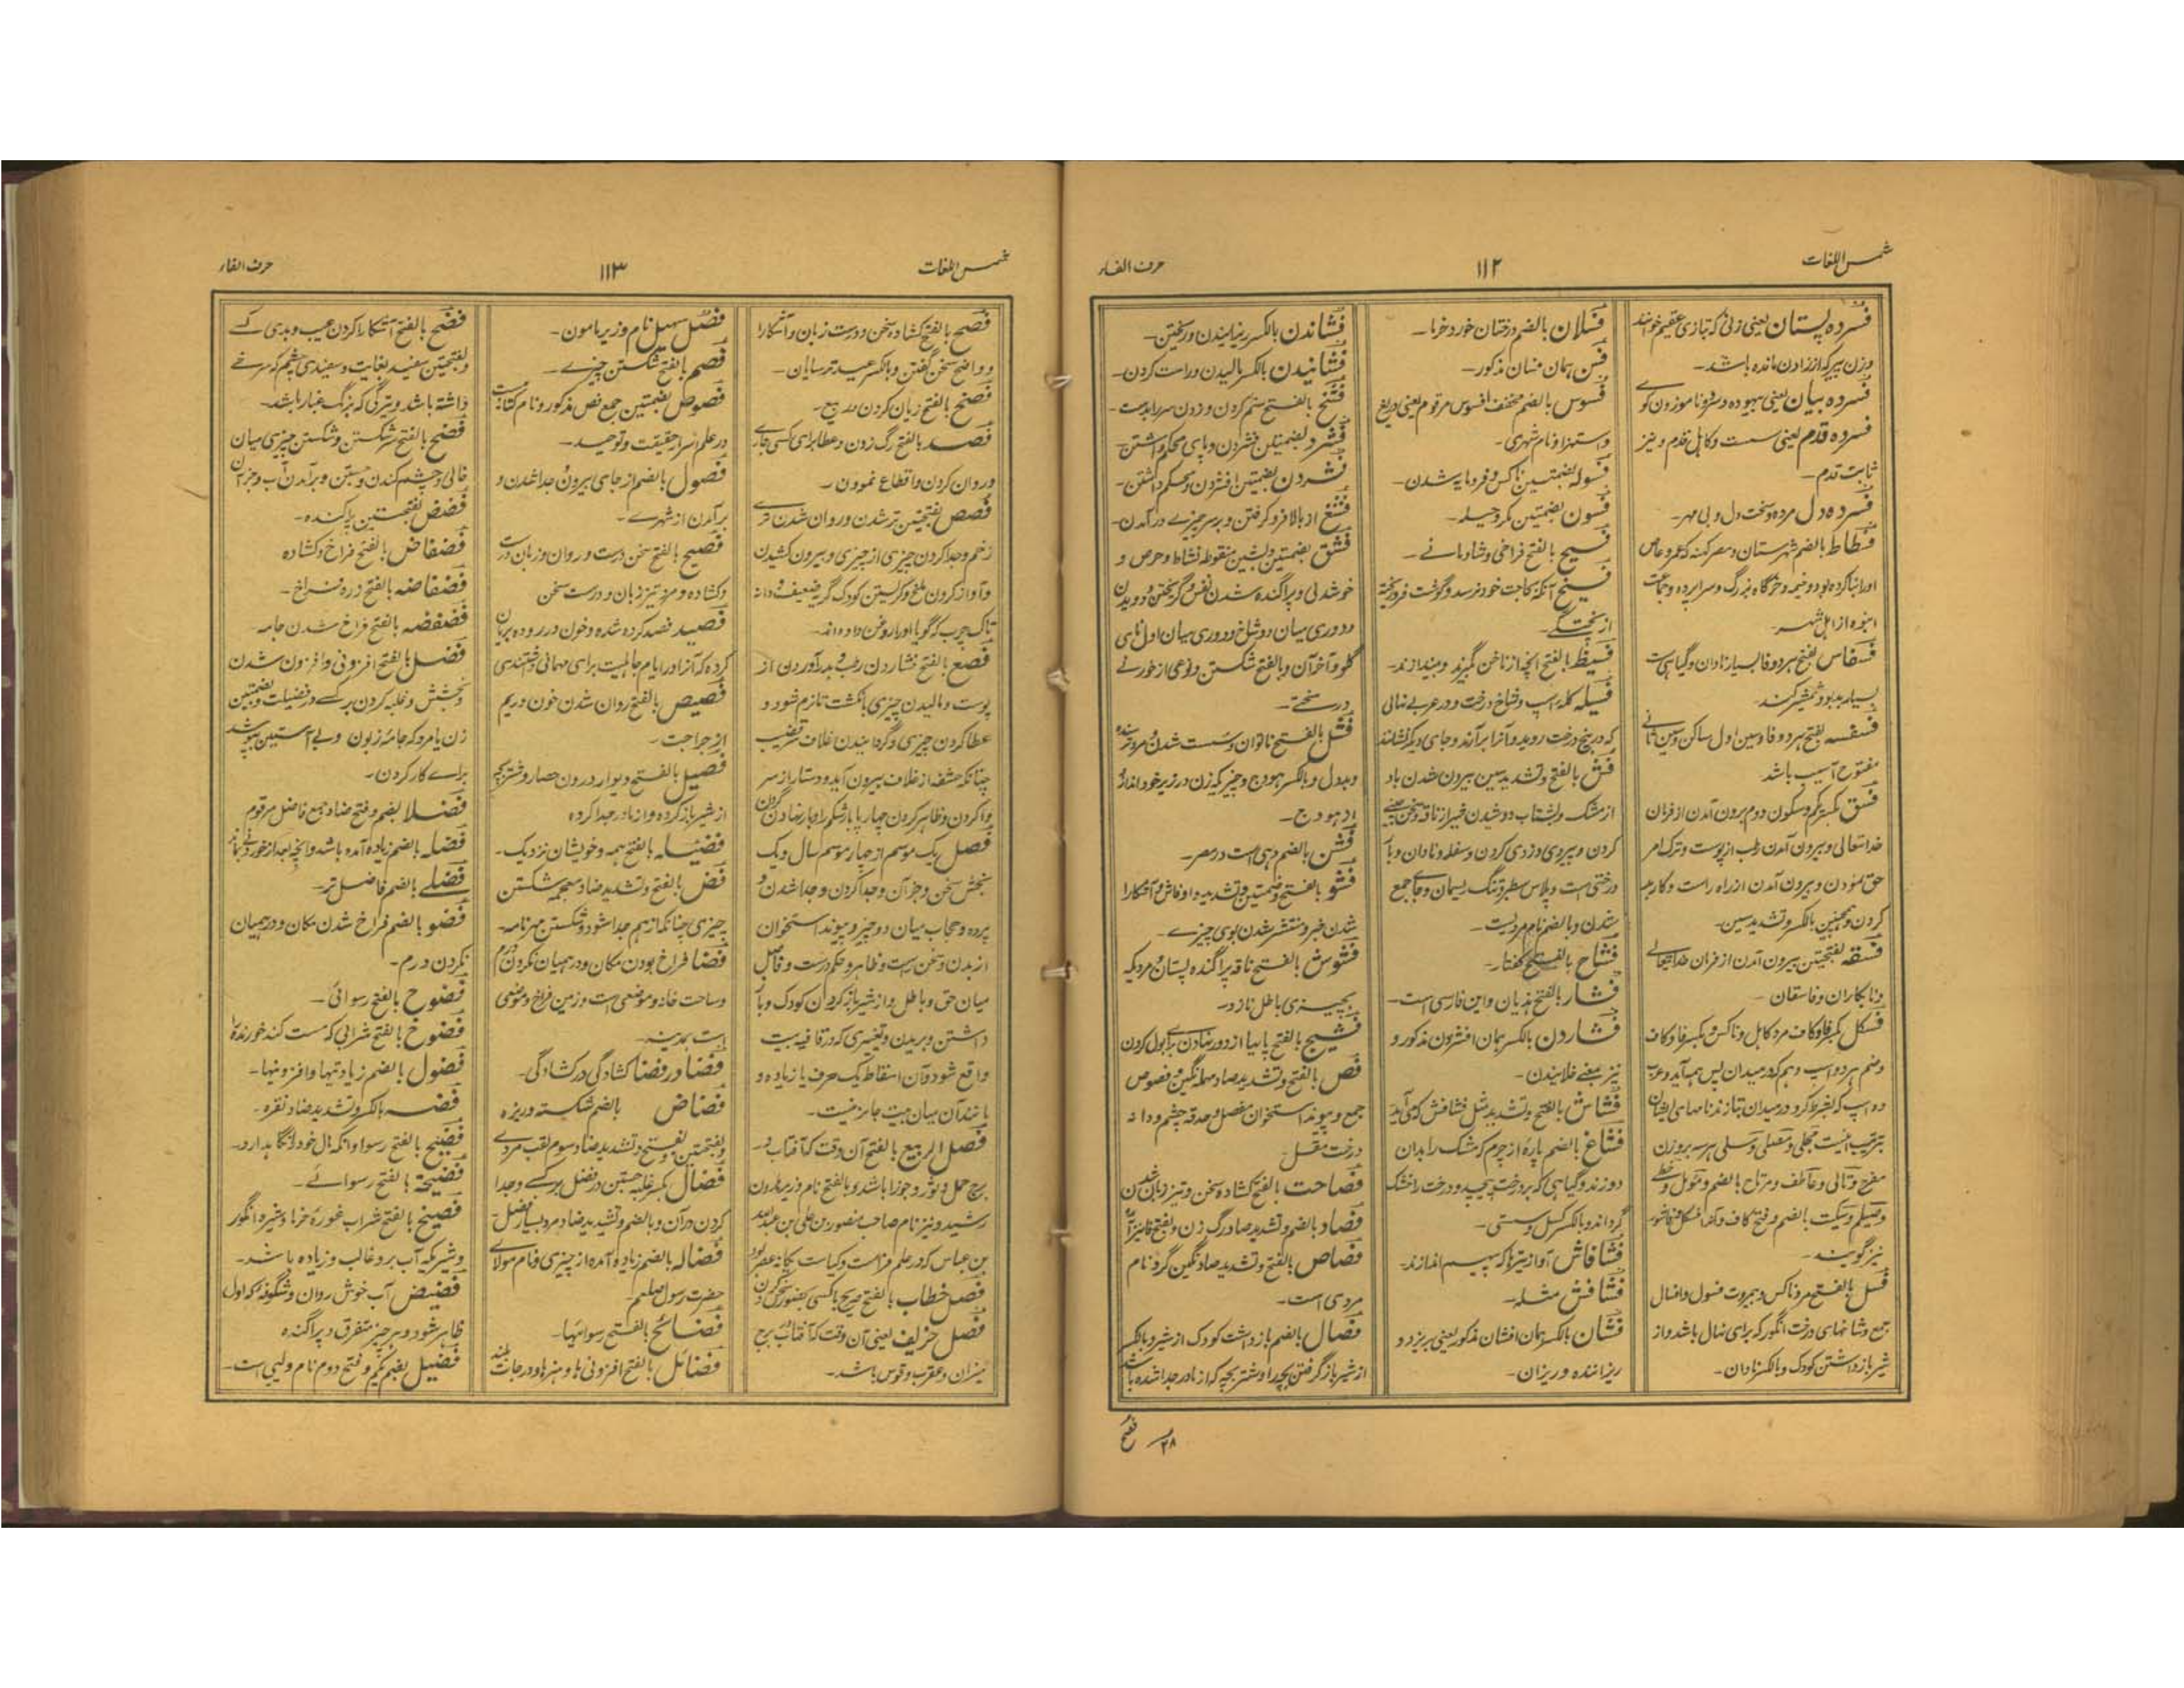 شمس اللغات
۱۱۲
حرف الفاء
فسرده پستان یعنی زنی که بتازی عقیم خوانند
وزن پیر که از زادن مانده باشد۔
فسرده بیان یعنی بیهوده و ناموزون گو
فسرده قدم یعنی سست و کاہل قدم و نیز
ثابت قدم۔
فسرده دل مرده و سخت دل و بی مہر۔
فسطاط بالضم شهرستان و مصر کہنه که عمرو عاص
اورا بنا کرده بود و خیمه و خرگاه بزرگ و سراپرده و جماعت
انبوه از اهل شهر۔
فسفاس بفتح هر دو فا بسیار نادان و گیاہی ست
بسیار بدبو و شمشیر کند
فسفسه بفتح هر دو فا و سین اول ساکن و سین ثانی
مفتوح آسیب باشد
فسق بکسر یکم و سکون دوم برون آمدن از فرمان
خدا تعالی و بیرون آمدن رطب از پوست و ترک امر
حق نمودن و بیرون آمدن از راه راست و کار بد
کردن و همچنین بالکسر و تشدید سین۔
فسقه بفتحتین بیرون آمدن از فرمان خدا تعالی
و نابکاران و فاسقان۔
فسکل بکسر فا و کاف مرد کاہل و ناکس و بکسر فا و کاف
و ضم هر دو اسپ و هم که در میدان پس همه آید و عرب
ده اسپ که بشرط گرو در میدان بتازند نامهای ایشان
بترتیب اینست مجلی و مصلی و مسلی هر سه بر وزن
مفرح و تالی و عاطف و مرتاح بالضم و مؤمل و حظی
و لطیم و سکیت بالضم و فتح کاف و آنرا فسکل و قاشور
نیز گویند۔
فسل بالفتح مرد ناکس و بیمروت فسول و افسال
جمع و شاخهای درخت انگور که برای نهال باشد و از
شیر باز داشتن کودک و بالکسر نادان۔
فسلان بالضم درختان خورد خرما۔
فسن همان فسان مذکور۔
فسوس بالضم مخفف افسوس مرقوم یعنی دریغ
و استهزا و نام شهری۔
فسوله بضمتین ناکس و فرومایه شدن۔
فسون بضمتین مکر و حیله۔
فسیح بالفتح فراخی و شادمانے۔
فسیخ آنکه بحاجت خود نرسد و گوشت فروریخته
از پختگی۔
فسیط بالفتح آنچه از ناخن گیرند و بیندازند۔
فسیله گله اسپ و شاخ درخت و در عربی نهالی
که در بیخ درخت روید و آنرا برآرند و جای دیگر نشانند
فش بالفتح و تشدید سین بیرون شدن باد
از مشک و بشتاب دوشیدن شیر از ناقه
کردن و پیروی و دزدی کردن و سفله و نادان و بار
درختی است و پلاس سطبر و تنگ ریسمان و جای جمع
شدن و بالضم نام مردیست۔
فشاح بالفتح کفتار۔
فشار بالفتح هذیان و این فارسی است۔
فشاردن بالکسر همان افشردن مذکور و
نیز بمعنے خلانیدن۔
فشاش بالفتح و تشدید مثل فشافش که می آید
فشاغ بالضم پاره از چرم که مشک را بدان
دوزند و گیاہی که بر درخت پیچد و درخت را خشک
گرداند و بالکسر کسل و سستی۔
فشافاش آواز تیرها که پیهم اندازند۔
فشافش مثله۔
فشان بالکسر همان افشان مذکور یعنی بریزد و
ریزاننده و ریزان۔
فشاندن بالکسر ریزانیدن و ریختن۔
فشانیدن بالکسر بالیدن و راست کردن۔
فشخ بالفتح ستم کردن و زدن سر را بدست۔
فشرد بضمتین فشردن و پای محکم داشتن۔
فشردن بضمتین افشردن و محکم داشتن۔
فشغ از بالا فرو گرفتن و بر سر چیزے درآمدن۔
فشق بضمتین و بشین منقوطه نشاط و حرص و
خوشدلی و پراگنده شدن نفس و گریختن و دویدن
و دوری میان دو شاخ و دوری میان اول نای
گلو و آخر آن و بالفتح شکستن و نوعی از خورنے
در سختے۔
فشل بالفتح ناتوان و سست شدن و مرد ترسنده
و بددل و بالکسر هودج و چیزیکه زن در زیر خود اندازد
در هودج۔
فشن بالضم دہی است در مصر۔
فشو بالفتح و ضمتین و تشدید واو فاش و آشکارا
شدن خبر و منتشر شدن بوی چیزے۔
فشوش بالفتح ناقه پراگنده پستان و مردیکه
بچیزی باطل نازد۔
فشیح بالفتح پایها از دور نهادن برای بول کردن
فص بالفتح و تشدید صاد مہمله نگین و فصوص
جمع و پیوند استخوان مفصل و حدقه چشم و دانه
درخت مقل۔
فصاحت بالفتح کشاده سخن و تیز زبان شدن
فصاد بالضم و تشدید صاد رگ زن و بالفتح نیز آمده
فصاص بالفتح و تشدید صاد نگین گر و نام
مردی است۔
فصال بالضم باز داشت کودک از شیر و بالکسر
از شیر باز گرفتن بچه را و شتر بچه که از مادر جدا شده باشد
۲۸
فصح
شمس اللغات
۱۱۳
حرف الفاء
فصح بالفتح کشاده سخن و درست زبان و آشکارا
و واضح سخن گفتن و بالکسر عید ترسایان۔
فصخ بالفتح زیان کردن در بیع۔
فصد بالفتح رگ زدن و عطا برای کسی جاری
و روان کردن و اقطاع نمودن۔
فصص بفتحتین تر شدن و روان شدن تری
زخم و جدا کردن چیزی از چیزی و بیرون کشیدن
و آواز کردن ملخ و گریستن کودک گریه ضعیف و دانه
تاک چرب که گویا او را روغن داده اند۔
فصع بالفتح فشاردن رطب و بدر آوردن از
پوست و مالیدن چیزی بانگشت تا نرم شود و
عطا کردن چیزی و گردانیدن غلاف قضیب
چنانکه حشفه از غلاف بیرون آید و دستار از سر
وا کردن و ظاهر کردن چهارپا بار شکم را و بار نهادن گردن
فصل یک موسم از چهار موسم سال و یک
بخش سخن و جز آن و جدا کردن و جدا شدن و
پرده و حجاب میان دو چیز و پیوند استخوان
از بدن و سخن راست و ظاهر و حکم درست و فاصل
میان حق و باطل و از شیر باز کردن کودک و باز
داشتن و بریدن و تغییری که در قافیه بیت
واقع شود و آن اسقاط یک حرف یا زیاده و
مانند آن میان بیت جایز نیست۔
فصل الربیع بالفتح آن وقت که آفتاب در
برج حمل و ثور و جوزا باشد و بالفتح نام وزیر هارون
رشید و نیز نام صاحب منصور بن علی بن عبدالله
بن عباس که در علم فراست و کیاست یگانه عصر بود
فصل خطاب بالفتح صریح با کسی بحضور سخن کردن
فصل خریف یعنی آن وقت که آفتاب در برج
میزان و عقرب و قوس باشد۔
فضل سهیل نام وزیر مامون۔
فصم بالفتح شکستن چیزے۔
فصوص بضمتین جمع فص مذکور و نام کتابیست
در علم اسرار حقیقت و توحید۔
فصول بالضم از جای بیرون جدا شدن و
برآمدن از شهرے۔
فصیح بالفتح سخن درست و روان و زبان درست
و کشاده و مرد تیز زبان و درست سخن
فصید فصد کرده شده و خون در روده بریان
کرده که آنرا در ایام جاہلیت برای مهمانی داشتندی
فصیص بالفتح روان شدن خون و ریم
از جراحت۔
فصیل بالفتح دیوار درون حصار و شتر بچه
از شیر باز کرده و از مادر جدا کرده
فصیله بالفتح همه و خویشان نزدیک۔
فض بالفتح و تشدید ضاد معجمه شکستن
چیزی چنانکه از هم جدا شود و شکستن مهر نامه۔
فضا فراخ بودن مکان و در همیان نکردن درم
و ساحت خانه و موضعی است و زمین فراخ و موضعی
است بمدینه۔
فضا در فضا کشادگی در کشادگی۔
فضاض بالضم شکسته و ریزه
و بفتحتین و بفتح و تشدید ضاد سوم لقب مردی
فضال بکسر غلبه جستن در فضل بر کسے و جدا
کردن در آن و بالضم و تشدید ضاد مرد بسیار فضل۔
فضاله بالضم زیاد و آمده از چیزی و نام مولای
حضرت رسول صلعم۔
فضائح بالفتح رسوائیها۔
فضائل بالفتح افزونی ها و هنرها و درجات بلند
فضح بالفتح آشکارا کردن عیب و بدی کسے
و بفتحتین سفید بغایت و سفیدی چشم که سرخے
داشته باشد و تیرگی که برنگ غبار باشد۔
فضخ بالفتح سر شکستن و شکستن چیزی میان
خالی و چشم کندن و جستن و برآمدن آب و جز آن
فضض بفتحتین پراکنده۔
فضفاض بالفتح فراخ و کشاده
فضفاضه بالفتح زره فراخ۔
فضفضه بالفتح فراخ شدن جامه۔
فضل بالفتح افزونی و افزون شدن
و بخشش و غلبه کردن بر کسے در فضیلت و بضمتین
زن یا مرد که جامه زبون و بی آستین پوشد
براے کار کردن۔
فضلا بضم و فتح ضاد جمع فاضل مرقوم
فضله بالضم زیاده آمده باشد و آنچه بعد از خوردنی ماند
فضلے بالضم فاضل تر۔
فضو بالضم فراخ شدن مکان و در همیان
نکردن درم۔
فضوح بالفتح رسوائی۔
فضوخ بالفتح شرابی که مست کند خورنده را
فضول بالضم زیادتیها و افزونیها۔
فضه بالکسر و تشدید ضاد نقره۔
فضیح بالفتح رسوا و آنکه مال خود را نگاه ندارد۔
فضیحة بالفتح رسوائے۔
فضیخ بالفتح شراب غوره خرما و شیره انگور
و شیر که آب برو غالب و زیاده باشد۔
فضیض آب خوش روان و شگوفه که اول
ظاهر شود و هر چیز متفرق و پراگنده
فضیل بضم یکم و فتح دوم نام ولیی است۔